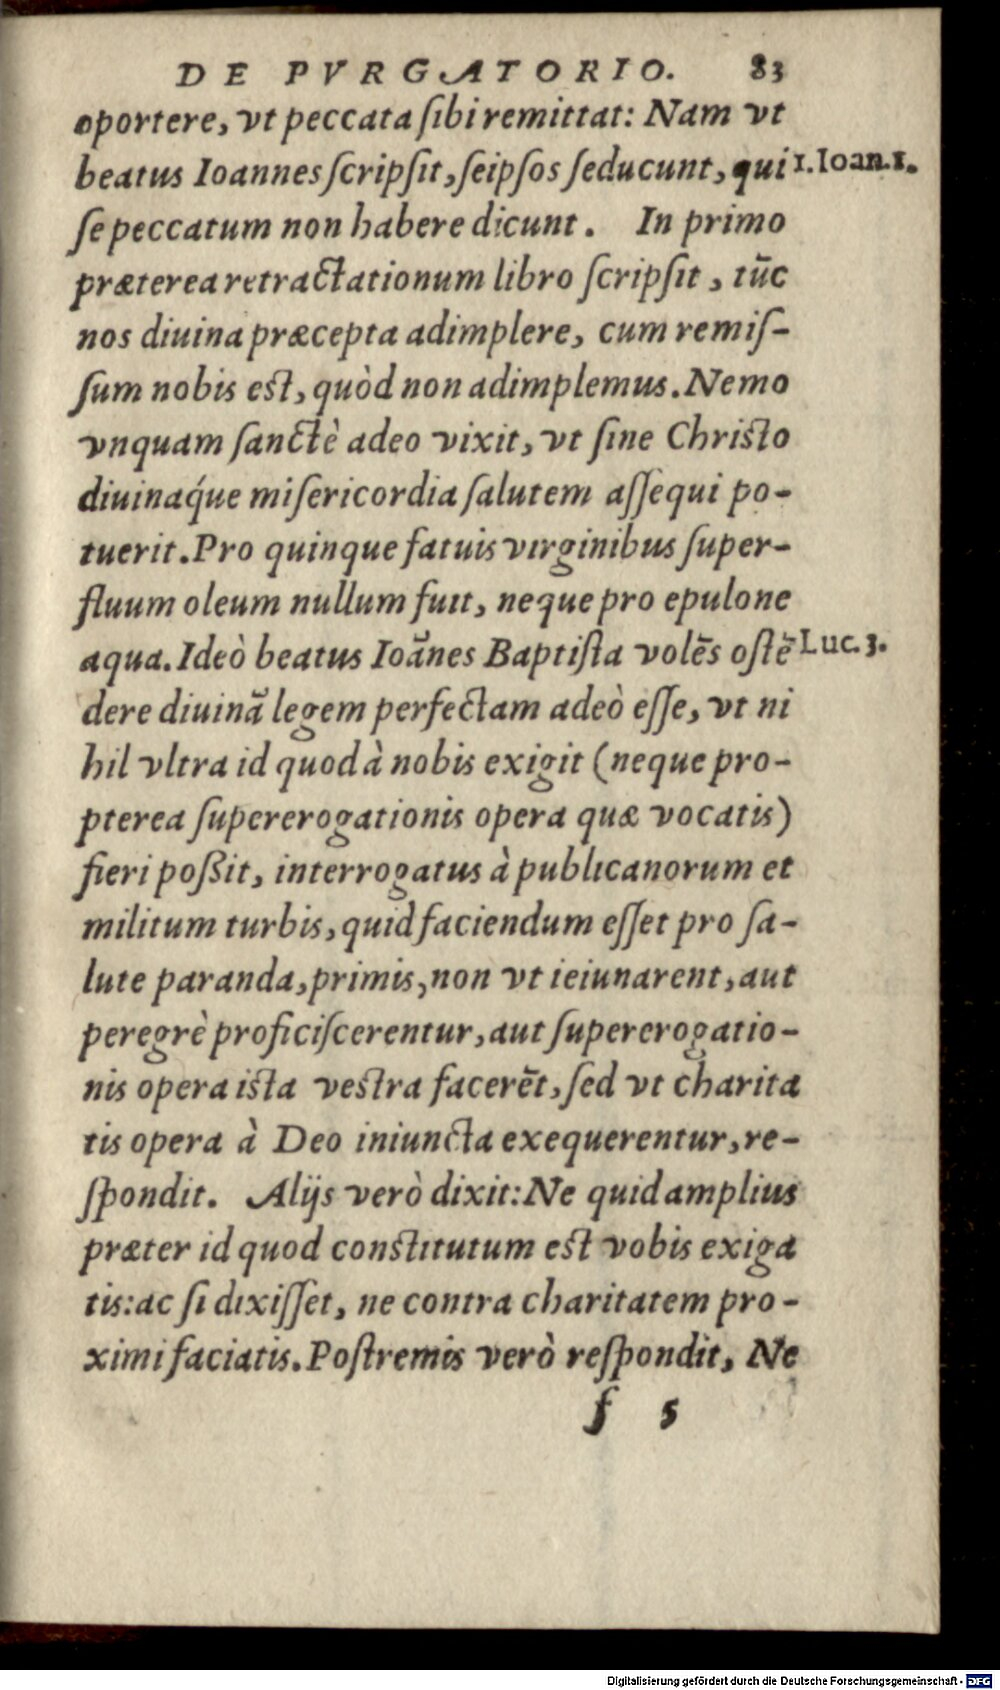 DE PVRGATORIO. 83
oportere, vt peccata ſibi remittat: Nam vt
beatus Ioannes ſcripſit, ſeipſos ſeducunt, qui 1. Ioan. 1.
ſe peccatum non habere dicunt. In primo
præterea retractationum libro ſcripſit, tūc
nos diuina præcepta adimplere, cum remiſ-
ſum nobis eſt, quòd non adimplemus. Nemo
vnquam ſanctè adeo vixit, vt ſine Chriſto
diuinaq́ue miſericordia ſalutem aſſequi po-
tuerit. Pro quinque fatuis virginibus ſuper-
fluum oleum nullum fuit, neque pro epulone
aqua. Ideò beatus Ioānes Baptiſta volēs oſtē Luc. 3.
dere diuinā legem perfectam adeò eſſe, vt ni
hil vltra id quod à nobis exigit (neque pro-
pterea ſupererogationis opera quæ vocatis)
fieri poßit, interrogatus à publicanorum et
militum turbis, quid faciendum eſſet pro ſa-
lute paranda, primis, non vt ieiunarent, aut
peregrè proficiſcerentur, aut ſupererogatio-
nis opera iſta veſtra facerēt, ſed vt charita
tis opera à Deo iniuncta exequerentur, re-
ſpondit. Alijs verò dixit: Ne quid amplius
præter id quod conſtitutum eſt vobis exiga
tis: ac ſi dixiſſet, ne contra charitatem pro-
ximi faciatis. Poſtremis verò reſpondit, Ne
f 5
Digitalisierung gefördert durch die Deutsche Forschungsgemeinschaft - DFG